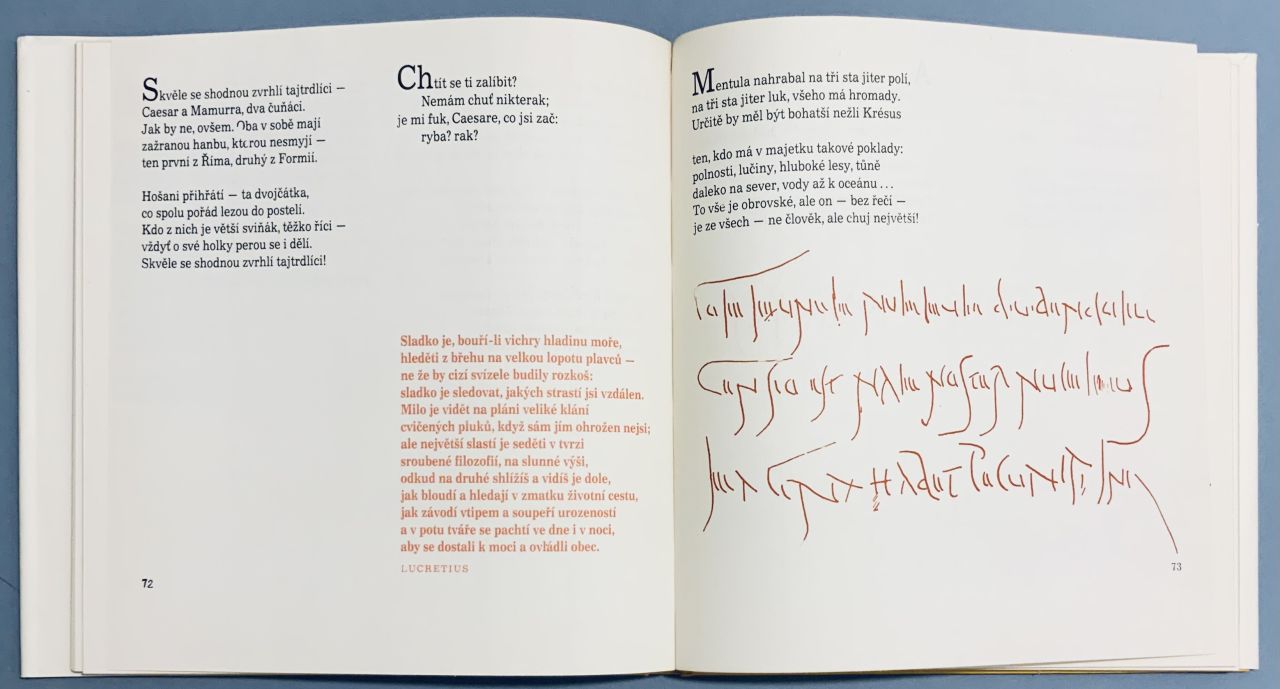 Skvěle se shodnou zvrhlí tajtrdlíci —
Caesar a Mamurra, dva čuňáci.
Jak by ne, ovšem. Oba v sobě mají
zažranou hanbu, kterou nesmyjí —
ten první z Říma, druhý z Formií.
Hošani přihřátí — ta dvojčátka,
co spolu pořád lezou do postelí.
Kdo z nich je větší sviňák, těžko říci —
vždyť o své holky perou se i dělí.
Skvěle se shodnou zvrhlí tajtrdlíci!
72
Chtít se ti zalíbit?
Nemám chuť nikterak;
je mi fuk, Caesare, co jsi zač:
ryba? rak?
Sladko je, bouří-li vichry hladinu moře,
hleděti z břehu na velkou lopotu plavců —
ne že by cizí svízele budily rozkoš:
sladko je sledovat, jakých strastí jsi vzdálen.
Milo je vidět na pláni veliké klání
cvičených pluků, když sám jím ohrožen nejsi;
ale největší slastí je seděti v tvrzi
sroubené filozofií, na slunné výši,
odkud na druhé shlížíš a vidíš je dole,
jak bloudí a hledají v zmatku životní cestu,
jak závodí vtipem a soupeří urozeností
a v potu tváře se pachtí ve dne i v noci,
aby se dostali k moci a ovládli obec.
LUCRETIUS
Mentula nahrabal na tři sta jiter polí,
na tři sta jiter luk, všeho má hromady.
Určitě by měl být bohatší nežli Krésus
ten, kdo má v majetku takové poklady:
polnosti, lučiny, hluboké lesy, tůně
daleko na sever, vody až k oceánu . . .
To vše je obrovské, ale on — bez řečí —
je ze všech — ne člověk, ale chuj největší!
73